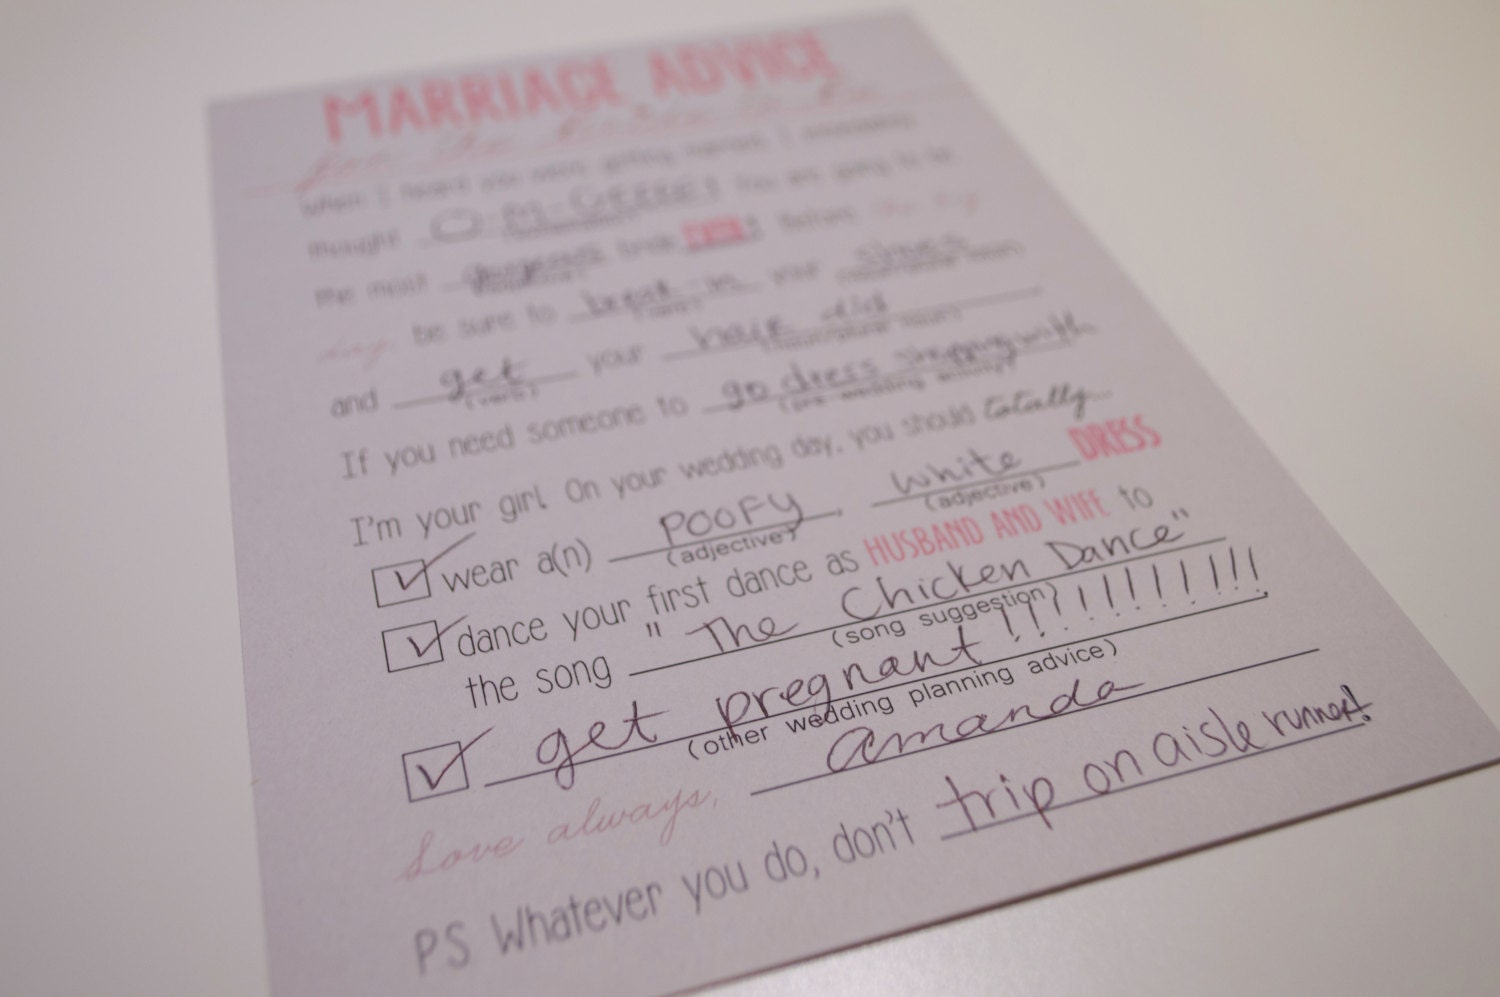 MARRIAGE ADVICE
for the Bride to Be
When I heard you were getting married, I immediately
thought O-M-GEEEE! You are going to be
the most gorgeous bride EVER! Before the big
day be sure to break in your shoes
and get your hair did
(verb)
If you need someone to go dress shopping with
(pre wedding activity)
I'm your girl. On your wedding day, you should totally...
wear a(n) POOFY, white DRESS
(adjective) (adjective)
dance your first dance as HUSBAND AND WIFE to
the song "The Chicken Dance"
(song suggestion)
get pregnant!!!!!!!!!!!
(other wedding planning advice)
Love always, amanda
PS Whatever you do, don't trip on aisle runner!